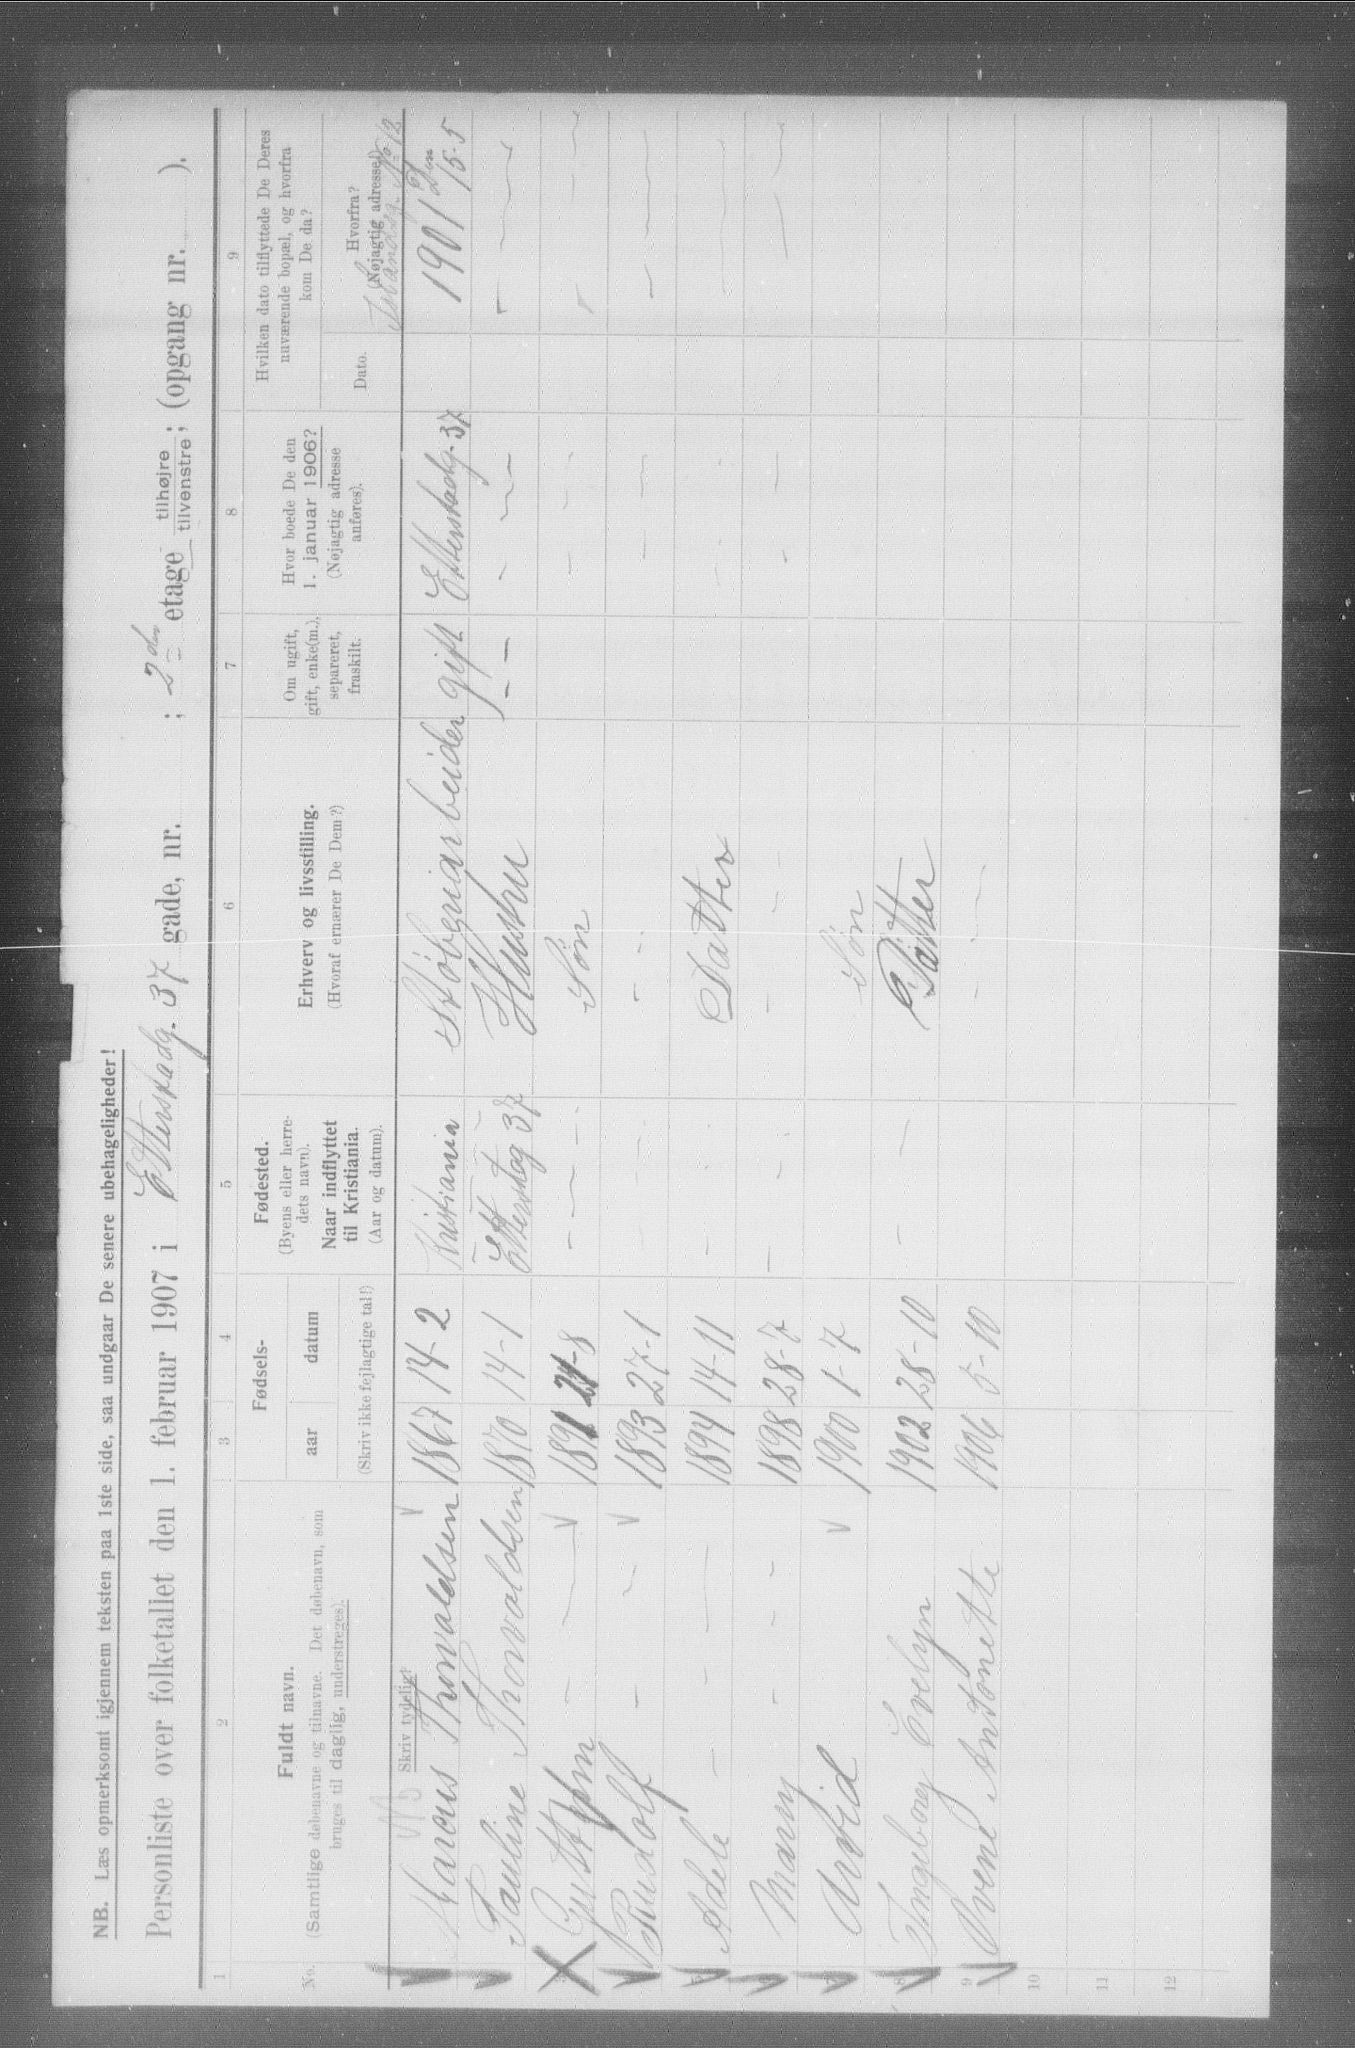 NB. Læs opmerksomt igjennem teksten paa 1ste side, saa undgaar De senere ubehageligheder!
Personliste over folketallet den 1. februar 1907 i Etterstadg. 37 gade, nr. ; 2den etage tilhøjre tilvenstre ; (opgang nr. ).
1 2 3 4 5 6 7 8 9
No.
Fuldt navn.
(Samtlige døbenavne og tilnavne. Det døbenavn, som
bruges til daglig, understreges).
Skriv tydeligt
Fødsels-
aar datum
(Skriv ikke fejlagtige tal!)
Fødested.
(Byens eller herre-
dets navn).
Naar indflyttet
til Kristiania.
(Aar og datum).
Erhverv og livsstilling.
(Hvoraf ernærer De Dem?)
Om ugift,
gift, enke(m.),
separeret,
fraskilt.
Hvor boede De den
1. januar 1906?
(Nøjagtig adresse
anføres).
Hvilken dato tilflyttede De Deres
nuværende bopæl, og hvorfra
kom De da?
Dato.
Hvorfra?
(Nøjagtig adresse.)
Marcus Thorvaldsen 1867 14-2 Kristiania Støberiarbeider gift Etterstadg. 37 1901 Den 15-5
Pauline Thorvaldsen 1870 14-1 Etterstag 37 Hustru - - - - -
3 - - 1891 24-8 - - - Søn - - - - - -
Rudolf - - 1893 27-1 - - - - - - - - - -
Adele - - - 1894 14-11 - - - Datter - - -
Marry - - - 1898 28-7 - - - - - - - - -
Arvid 1900 1-7 Søn
8 Ingeborg Evelyn 1902 28-10 - - Datter
9 Svene Andonette 1906 5-10 - - -
10
11
12